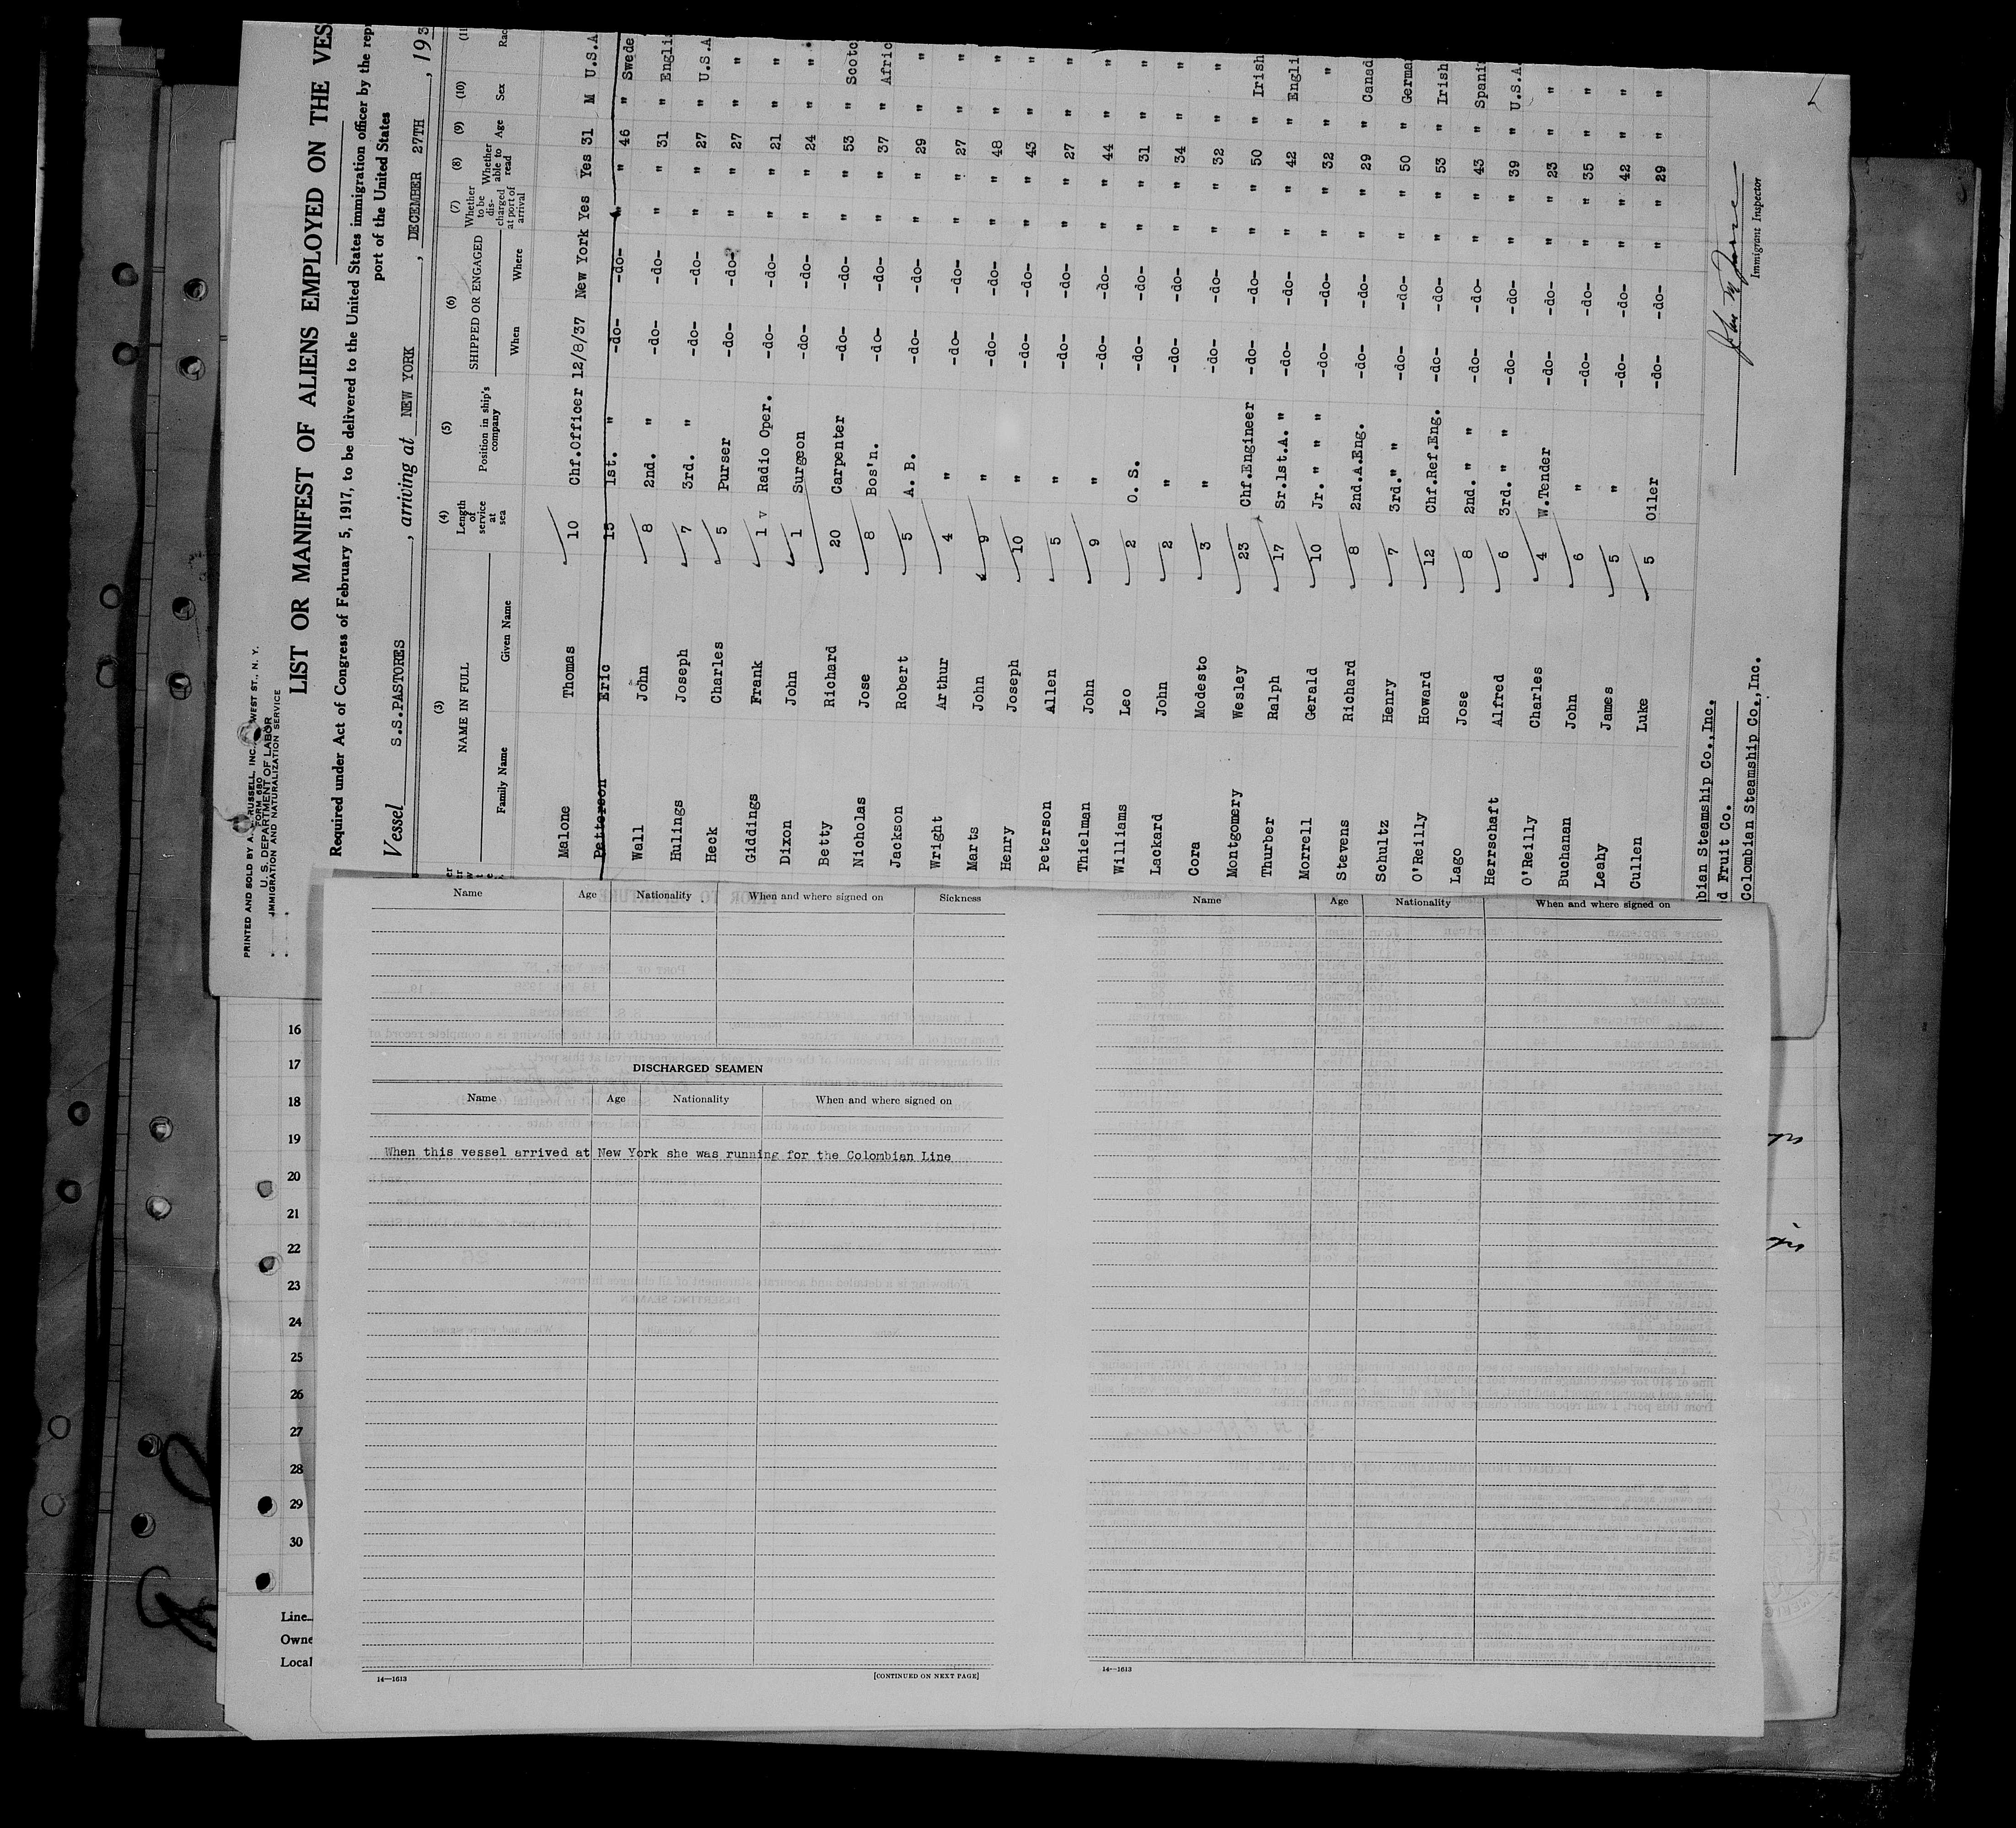 PRINTED AND SOLD BY A. RUSSELL, INC., WEST ST., N. Y.
FORM 680
U. S. DEPARTMENT OF LABOR
IMMIGRATION AND NATURALIZATION SERVICE
LIST OR MANIFEST OF ALIENS EMPLOYED ON THE VES
Required under Act of Congress of February 5, 1917, to be delivered to the United States immigration officer by the rep
port of the United States
Vessel S.S.PASTORES, arriving at NEW YORK, DECEMBER 27TH, 193
(3) (4) (5) (6) (7) (8) (9) (10) (11
NAME IN FULL Length of service at sea Position in ship's company SHIPPED OR ENGAGED Whether to be discharged at port of arrival Whether able to read Age Sex Rac
Family Name Given Name When Where
Malone Thomas 10 Chf.Officer 12/8/37 New York Yes Yes 31 M U.S.A
Patterson Eric 15 1st. " -do- -do- " " 46 " Swede
Wall John 8 2nd. " -do- -do- " " 31 " Engli
Hulings Joseph 7 3rd. " -do- -do- " " 27 " U.S.A
Heck Charles 5 Purser -do- -do- " " 27 " "
Giddings Frank 1 v Radio Oper. -do- -do- " " 21 " "
Dixon John 1 Surgeon -do- -do- " " 24 " "
Betty Richard 20 Carpenter -do- -do- " " 53 " Scotc
Nicholas Jose 8 Bos'n. -do- -do- " " 37 " Afric
Jackson Robert 5 A. B. -do- -do- " " 29 " "
Wright Arthur 4 " -do- -do- " " 27 " "
Marts John 9 " -do- -do- " " 48 " "
Henry Joseph 10 " -do- -do- " " 43 " "
Peterson Allen 5 " -do- -do- " " 27 " "
Thielman John 9 " -do- -do- " " 44 " "
Williams Leo 2 O. S. -do- -do- " " 31 " "
Lackard John 2 " -do- -do- " " 34 " "
Cora Modesto 3 " -do- -do- " " 32 " "
Montgomery Wesley 23 Chf.Engineer -do- -do- " " 50 " Irish
Thurber Ralph 17 Sr.1st.A. " -do- -do- " " 42 " Engli
Morrell Gerald 10 Jr. " " " -do- -do- " " 32 " "
Stevens Richard 8 2nd.A.Eng. -do- -do- " " 29 " Canad
Schultz Henry 7 3rd." " -do- -do- " " 50 " Germa
O'Reilly Howard 12 Chf.Ref.Eng. -do- -do- " " 53 " Irish
Lago Jose 8 2nd. " " -do- -do- " " 43 " Spani
Herrschaft Alfred 6 3rd. " " -do- -do- " " 39 " U.S.A.
O'Reilly Charles 4 W.Tender -do- -do- " " 23 " "
Buchanan John 6 " -do- -do- " " 35 " "
Leahy James 5 " -do- -do- " " 42 " "
Cullen Luke 5 Oiler -do- -do- " " 29 " "
bian Steamship Co.,Inc.
d Fruit Co.
Colombian Steamship Co.,Inc.
Immigrant Inspector
Name Age Nationality When and where signed on Sickness
DISCHARGED SEAMEN
Name Age Nationality When and where signed on
When this vessel arrived at New York she was running for the Colombian Line
14—1613 [CONTINUED ON NEXT PAGE]
Name Age Nationality When and where signed on
14—1613
16
17
18
19
20
21
22
23
24
25
26
27
28
29
30
Line
Owne
Local